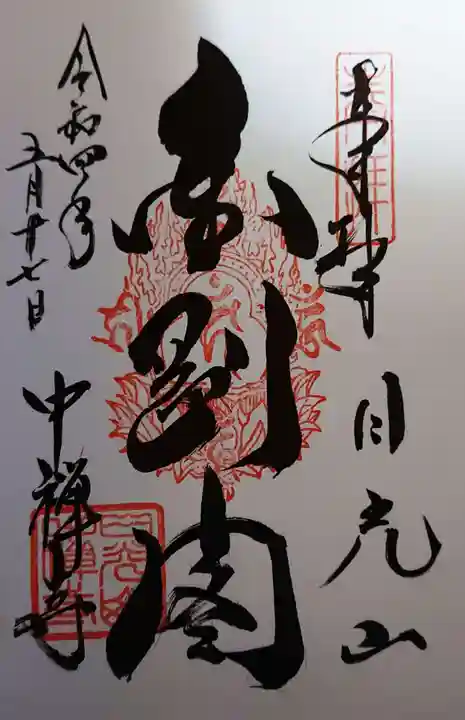 奉拝
日光山
金剛閣
令和四年
五月十七日
中禪寺